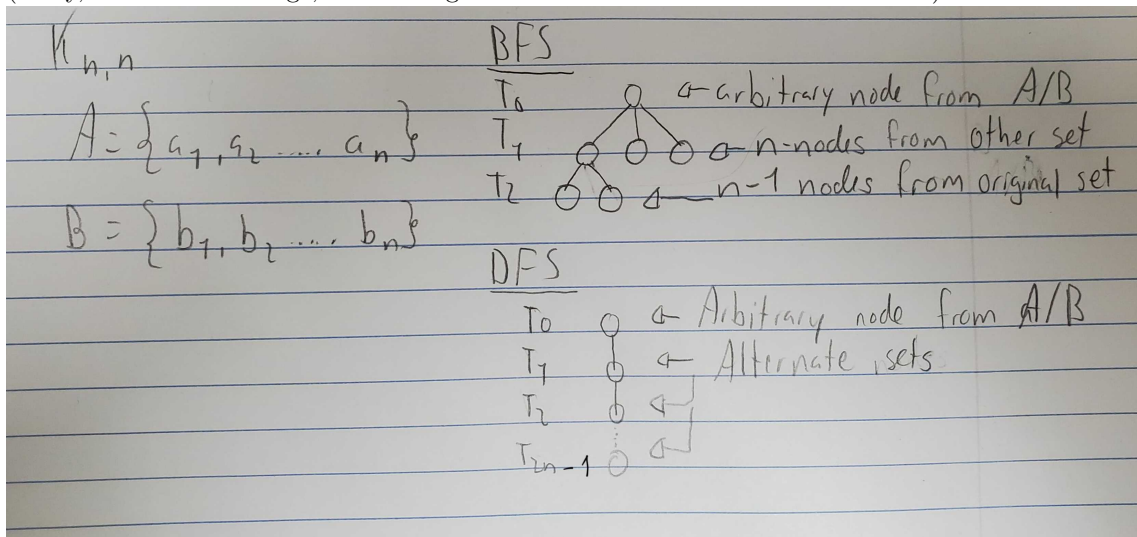 K_{n,n}
A = {a_1, a_2 .... a_n}
B = {b_1, b_2 .... b_n}
BFS
T_0 ← arbitrary node from A/B
T_1 ← n-nodes from other set
T_2 ← n-1 nodes from original set
DFS
T_0 ← Arbitrary node from A/B
T_1 ← Alternate sets
T_2 ←
T_{2n-1} ←